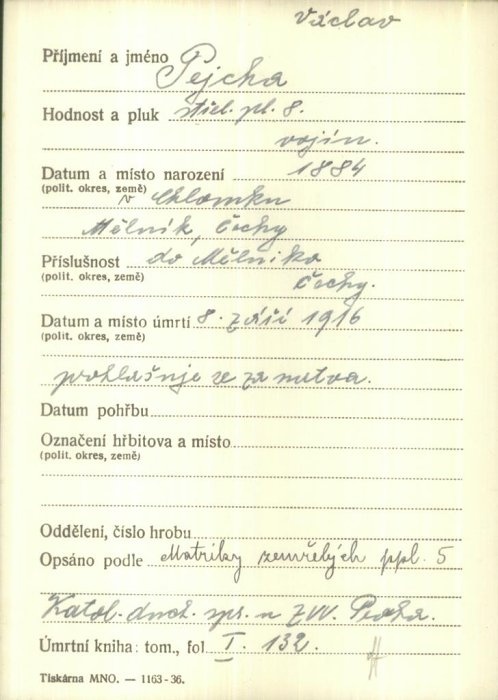 Václav
Příjmení a jméno Pejcha
Hodnost a pluk střel. pl. 8.
vojín.
Datum a místo narození 1884
(polit. okres, země) v Chlomku
Mělník, Čechy
Příslušnost do Mělníka
(polit. okres, země) Čechy.
Datum a místo úmrtí 8. září 1916
(polit. okres, země)
prohlašuje se za mrtva.
Datum pohřbu
Označení hřbitova a místo
(polit. okres, země)
Oddělení, číslo hrobu
Opsáno podle Matriky zemřelých ppl. 5
Katol. duch. spr. u ZVV. Praha.
Úmrtní kniha: tom., fol I. 132.
Tiskárna MNO. — 1163-36.